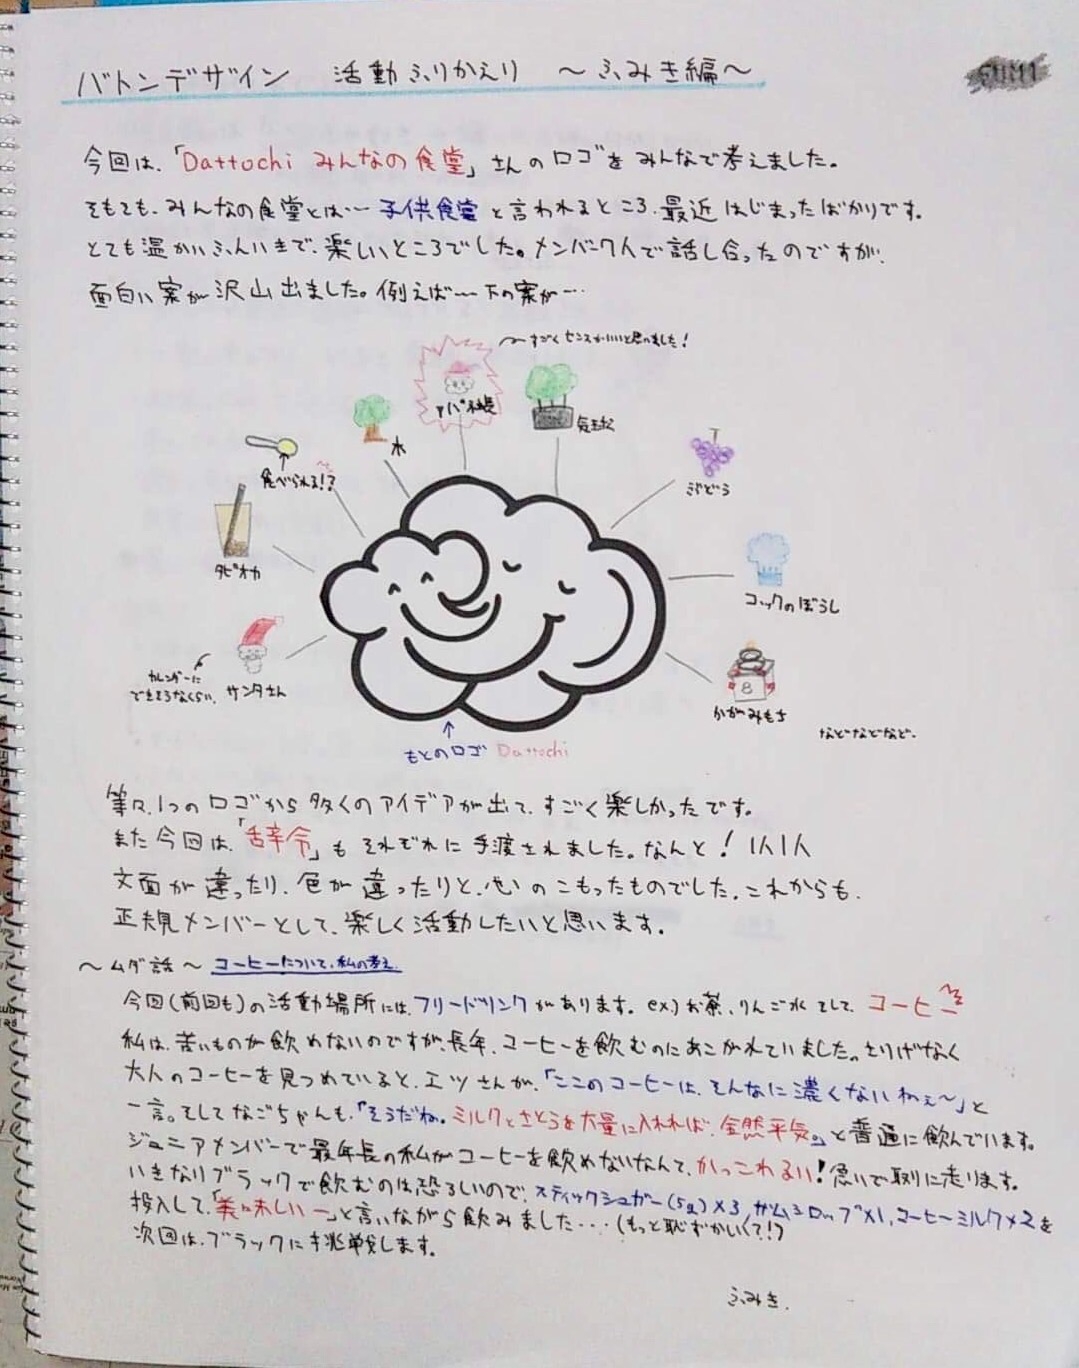 バトンデザイン 活動ふりかえり ～ふみき編～
今回は、「Dattochi みんなの食堂」さんのロゴをみんなで考えました。
そもそも、みんなの食堂とは… 子供食堂と言われるところ、最近はじまったばかりです。
とても温かいふんいきで、楽しいところでした。メンバー7人で話し合ったのですが、
面白い案が沢山出ました。例えば……下の案が…
すごくセンスがいいと思いました！
アパ社長
木
盆栽
食べられる!?
ぶどう
タピオカ
コックのぼうし
カレンダーに
できそうなくらい。
サンタさん
8
かがみもち
などなどなど。
もとのロゴ Dattochi
等々、1つのロゴから多くのアイデアが出て、すごく楽しかったです。
また今回は、「辞令」もそれぞれに手渡されました。なんと！1人1人
文面が違ったり、色が違ったりと、心のこもったものでした。これからも、
正規メンバーとして、楽しく活動したいと思います。
～ムダ話～ コーヒーについて、私の考え
今回(前回も)の活動場所には、フリードリンクがあります。ex.)お茶、りんご水 そして、コーヒー
私は、苦いものが飲めないのですが、長年、コーヒーを飲むのにあこがれていました。さりげなく
大人のコーヒーを見つめていると、エツさんが、「ここのコーヒーは、そんなに濃くないわぇ～」と
一言。そしてなごちゃんも、「そうだね。ミルクとさとうを大量に入れれば、全然平気。」と普通に飲んでいます。
ジュニアメンバーで最年長の私がコーヒーを飲めないなんて、かっこわるい！急いで取りに走ります。
いきなりブラックで飲むのは恐ろしいので、スティックシュガー(5g)×3、ガムシロップ×1、コーヒーミルク×2を
投入して、「美味しいー」と言いながら飲みました…(もっと恥ずかしくて!?)
次回は、ブラックに挑戦します。
ふみき.